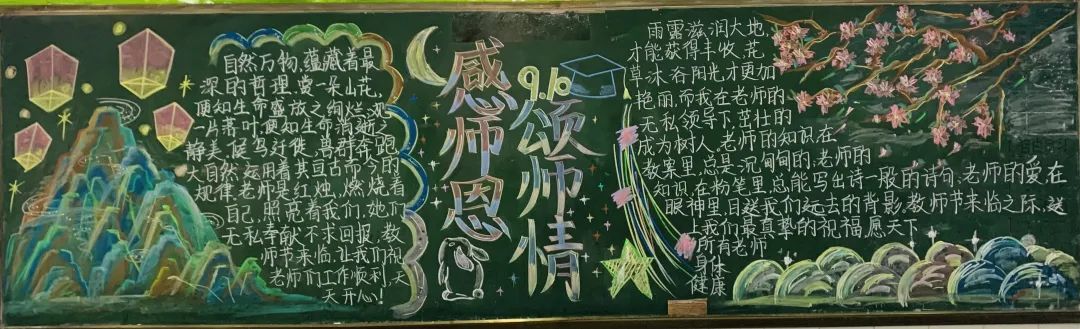 自然万物,蕴藏着最
深的哲理,赏一朵山花,
便知生命盛放之绚烂,观
一片落叶,便知生命消逝之
静美,候鸟迁徙,兽群奔跑,
大自然运用着其亘古而今的
规律,老师是红烛,燃烧着
自己,照亮着我们,她们
无私奉献不求回报,教
师节来临,让我们祝
老师们工作顺利,天
天开心!
感师恩
9.10
颂师情
雨露滋润大地,
才能获得丰收,花
草沐浴阳光才更加
艳丽,而我在老师的
无私领导下,茁壮的
成为树人,老师的知识在
教案里,总是沉甸甸的,老师的
知识,在粉笔里,总能写出诗一般的诗句,老师的爱,在
眼神里,目送我们远去的背影,教师节来临之际,送
上我们最真挚的祝福,愿天下
所有老师
身体
健康